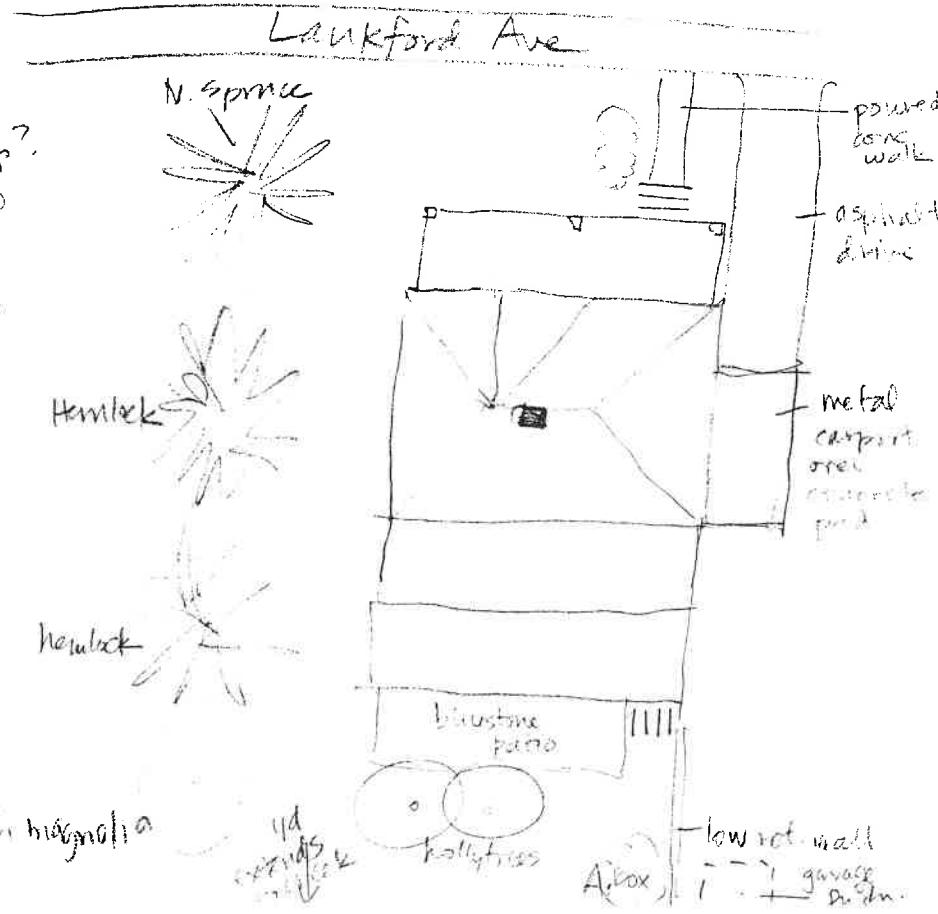 Lankford Ave
N. Spruce
poured
conc
walk
asphalt
drive
Hemlock
metal
carport
over
concrete
pad
hemlock
bluestone
patio
magnolia
yd
extends
hollytrees
low ret. wall
A. box
garage